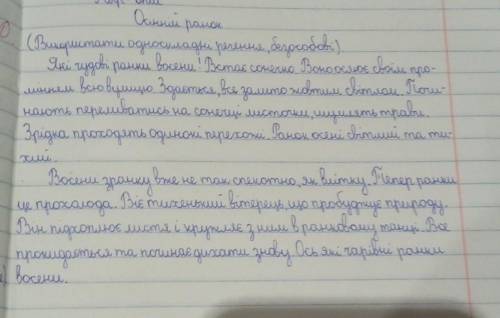 Осінній ранок
(Використати односкладні речення, безособові)
Які чудові ранки восени! Встає сонечко. Воно осяює своїм про-
мінням всю вулицю. Здається, все залито жовтим світлом. Почи-
нають переливатись на сонечці листочки, шумлять трави.
Зрідка проходять одинокі перехожі. Ранок осені світлий та ти-
хий.
Восени зранку вже не так спекотно, як влітку. Тепер ранки
це прохолода. Віє тихенький вітерець, що пробуджує природу.
Він підхоплює листя і кружляє з ним в ранковому танці. Все
прокидається та починає дихати знову. Ось які чарівні ранки
восени.